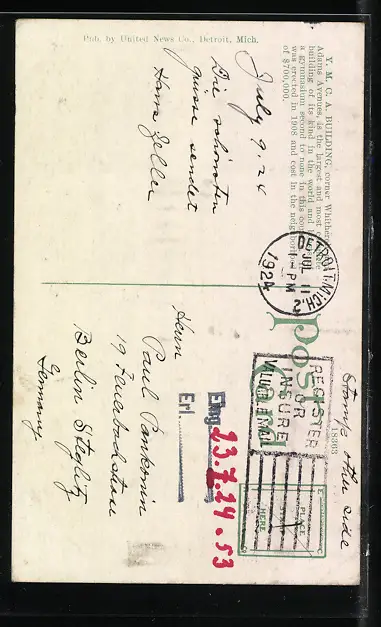 Pub. by United News Co., Detroit, Mich.
Y. M. C. A. BUILDING, corner
Adams Avenues, is the largest and most
building of its kind in the world and
a gymnasium second to none in this
was erected in 1908 and cost in the
of $700,000.
July 9. 24
Die schönsten
Grüsse sendet
Hans Zeller
DETROIT, MICH. 2
JUL 11
PM
1924
Post Card
REGISTER
OR
INSURE
VALUABLE MAIL
18363
Stamp other side
PLACE
STAMP
HERE
Eing. 23.7.24.53
Erl.
Herrn
Paul Pankonin
19 Feuerbachstr
Berlin Steglitz
Germany.